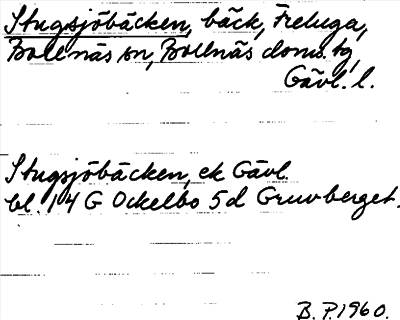 Stugsjöbäcken, bäck, Freluga,
Bollnäs sn, Bollnäs doms. tg,
Gävl. l.
Stugsjöbäcken, ek Gävl.
bl. 14 G Ockelbo 5d Gruvberget.
B. P. 1960.